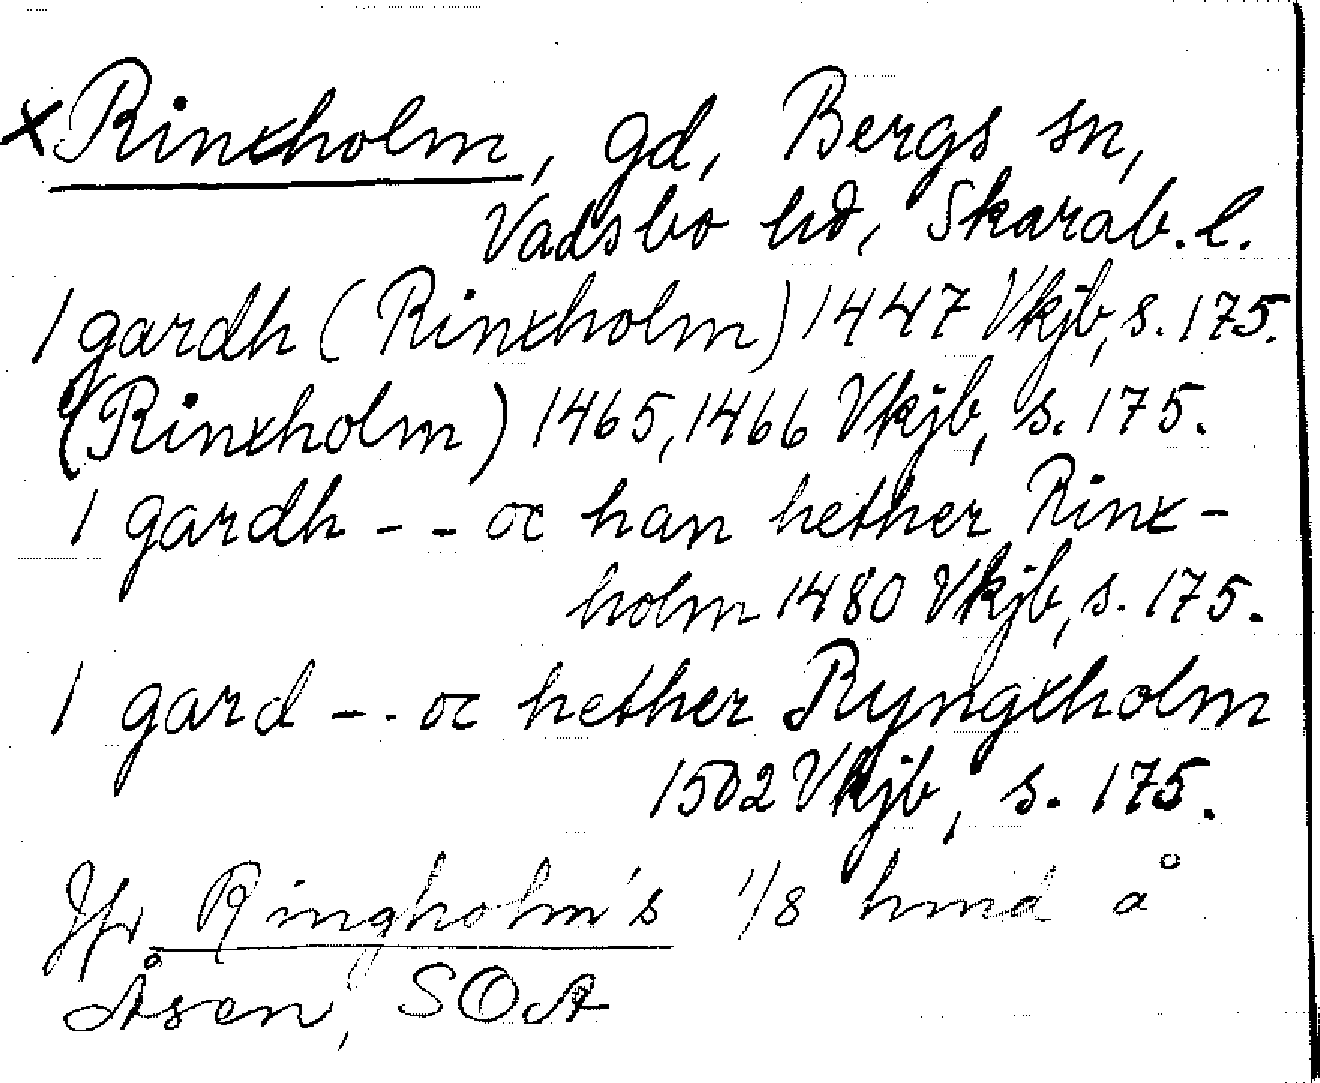 xRinxholm, gd, Bergs sn,
Vadsbo hd, Skarab. l.
1 gardh (Rinxholm) 1447 Vkjb, s. 175.
(Rinxholm) 1465, 1466 Vkjb, s. 175.
1 gardh - - oc han hether Rinx-
holm 1480 Vkjb, s. 175.
1 gard - - oc hether Ryngxholm
1502 Vkjb, s. 175.
Jfr Ringholm's 1/8 hmd å
Åsen, SOA